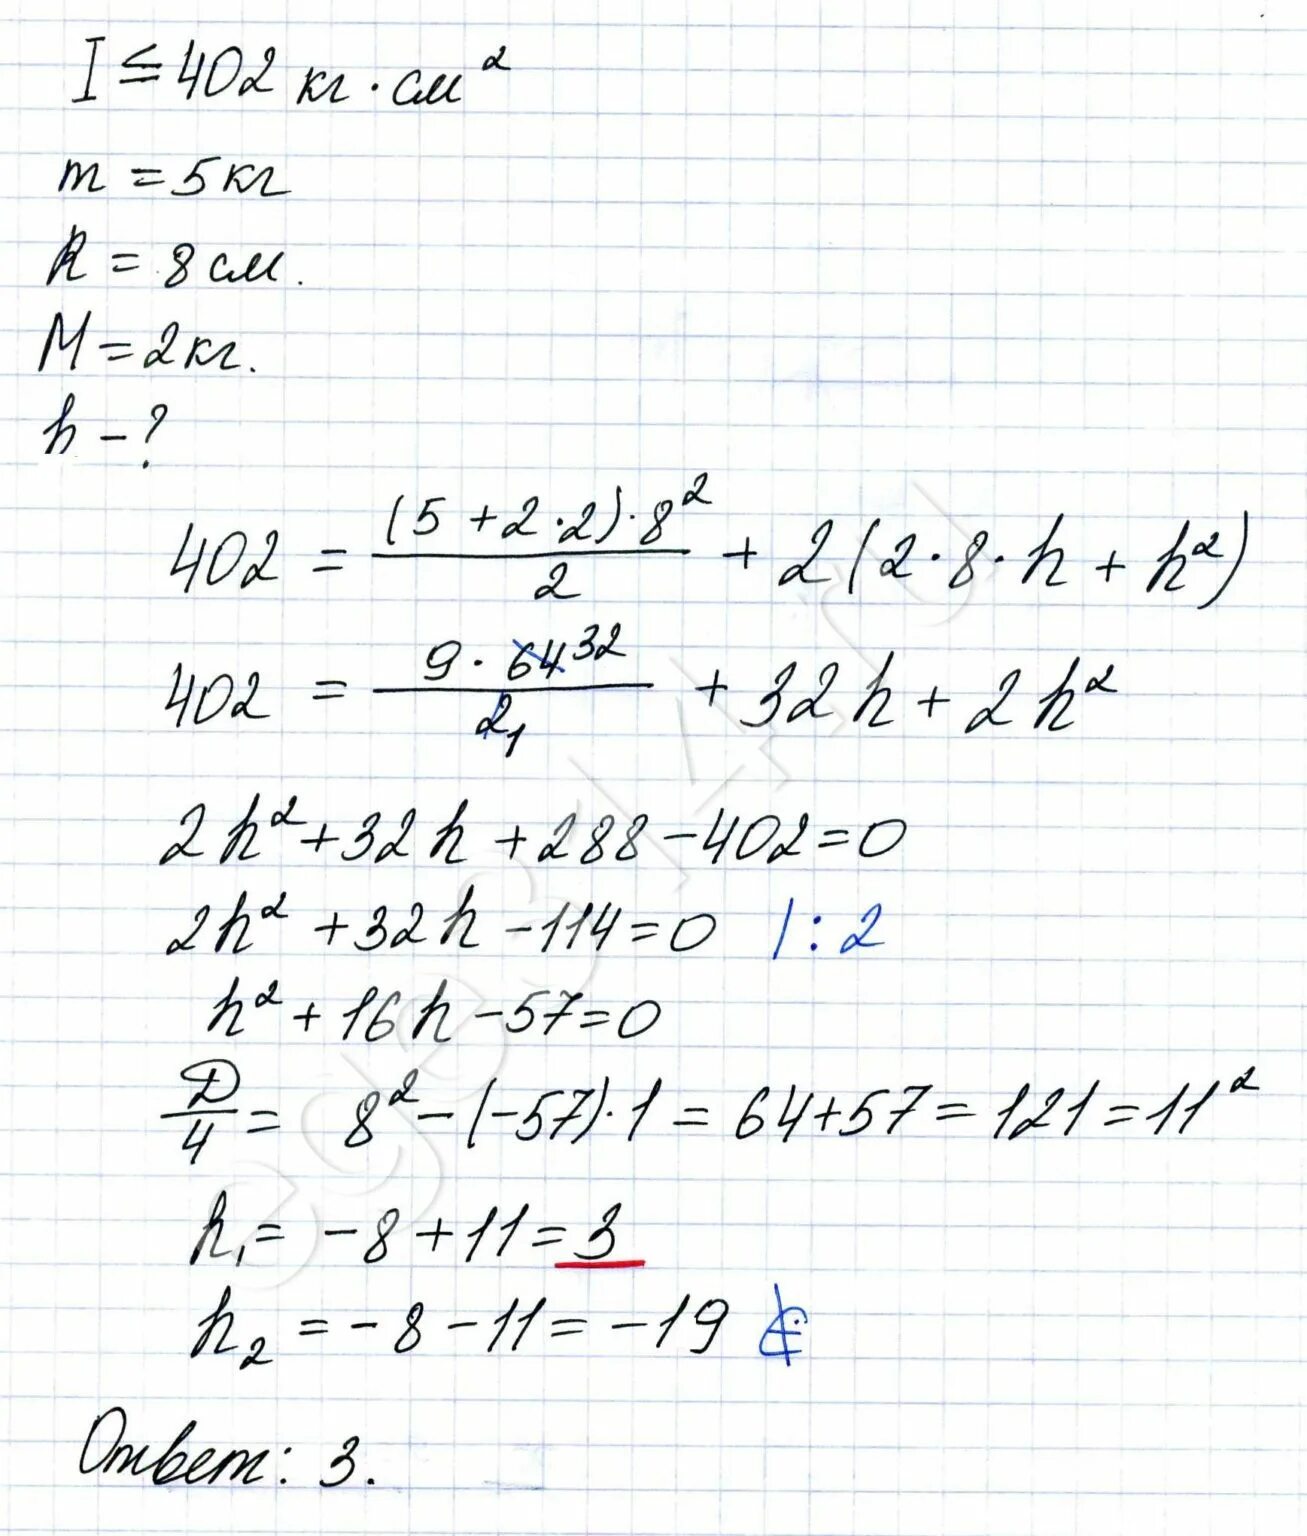 I ≤ 402 кг · см²
m = 5 кг
R = 8 см.
M = 2 кг.
h - ?
402 = (5 + 2 · 2) · 8² / 2 + 2(2 · 8 · h + h²)
402 = 9 · 64 32 / 2 1 + 32h + 2h²
2h² + 32h + 288 - 402 = 0
2h² + 32h - 114 = 0 | : 2
h² + 16h - 57 = 0
Д/4 = 8² - (-57) · 1 = 64 + 57 = 121 = 11²
h₁ = -8 + 11 = 3
h₂ = -8 - 11 = -19
Ответ: 3.
ege314.ru